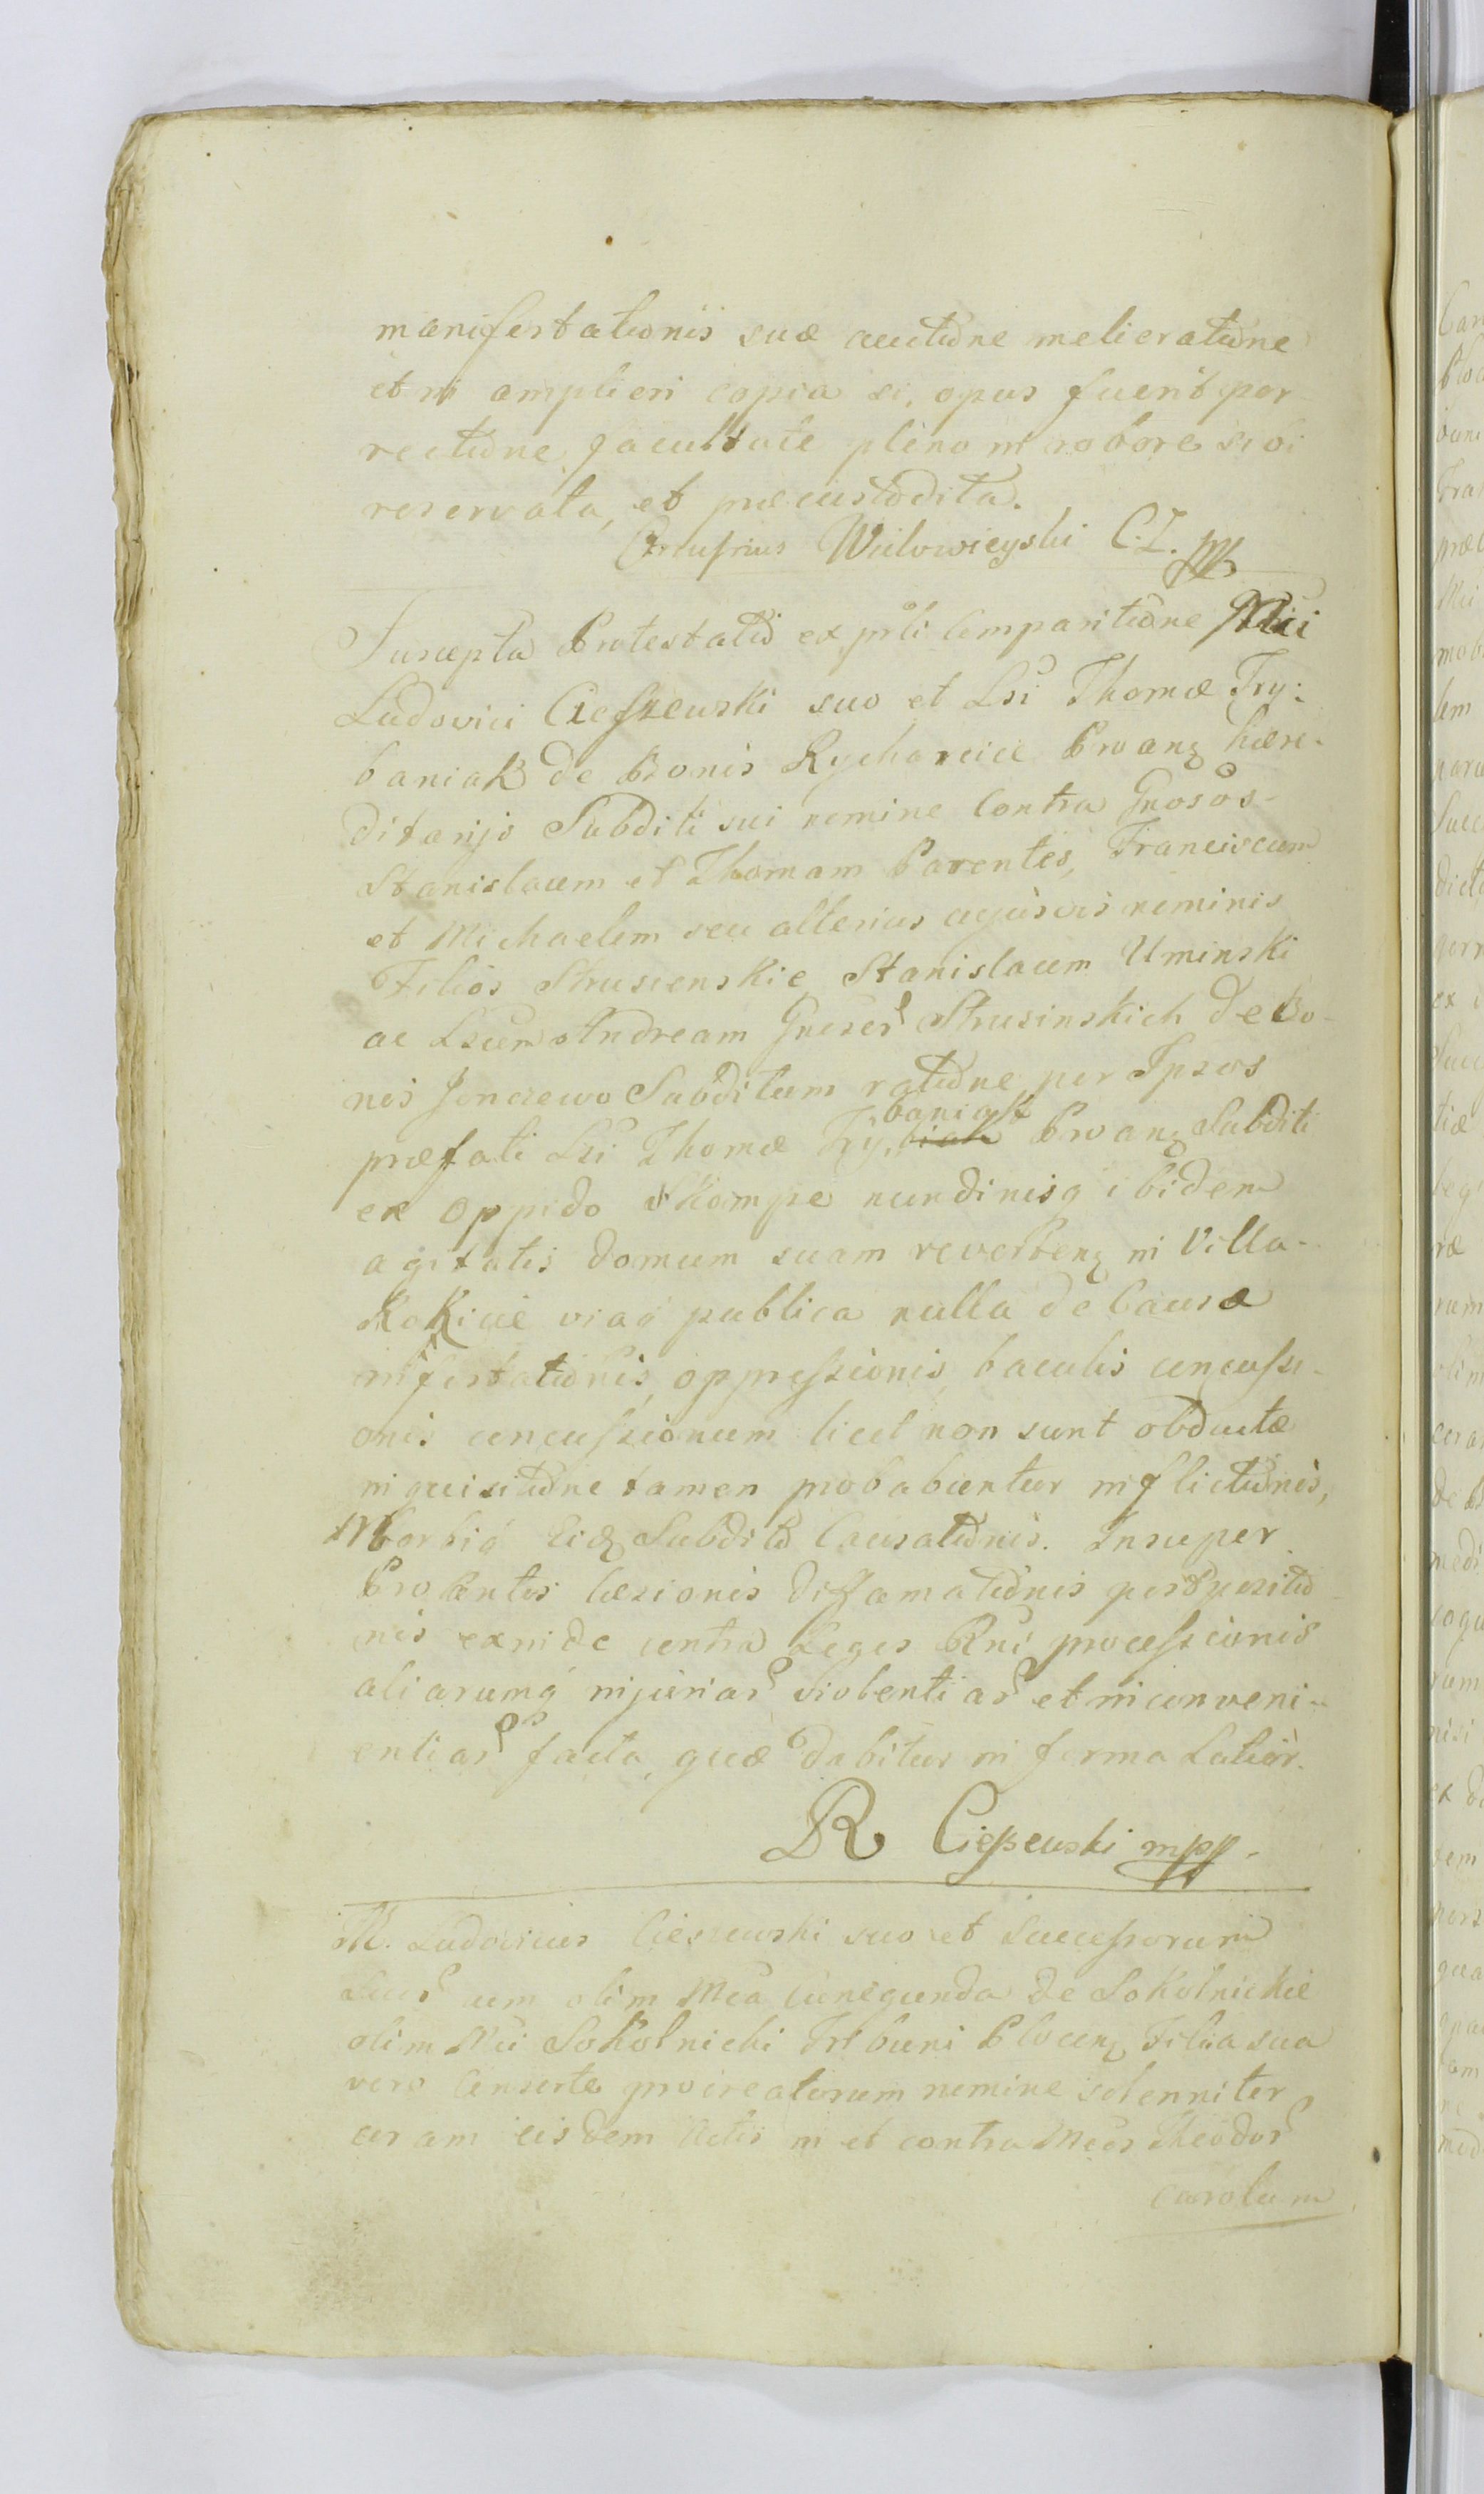 manifestationis suæ auctiõne melioratiõne
et in ampliori copia si, opus fuerit por
rectiõne facultate pleno in robore sibi
reservata, et præcustodita.
Onufrius Wilowieyski C. Z. mp
Suscepta Protestatiõ ex prli Comparitiõne Mci
Ludovici Cieszewski suo et Lsi Thomæ Try:
baniak de Bonis Rycharcice Proanz hære-
ditarijs Subditi sui nomine Contra Gnosos-
Stanislaum et Thomam Parentes, Franciscum
et Michaelem seu alterius cujusvis nominis
Filios Strusienskie Stanislaum Uminski
ac Lsum Andream Gneser Strusinskich de Bo-
nis Jonczewo Subditum ratiõne per Ipsos
præfati Lsi Thomæ Trybaniak Proanz Subditi
ex oppido Skompe nundinisq ibidem
agitatis domum suam revertenz in Villa-
Kokicie viaq publica nulla de Causa
infestatiõnis, oppressionis baculis concussi-
onis concussionum licet non sunt obductæ
inquisitiõne tamen probabuntur inflictiõnis,
Morbiq Eidz Subditõ Causatiõnis. Insuper
Protantis læsionis diffamatiõnis postpositiõ
nis exinde contra Leges Rni processionis
aliarumq injuriar violentiar et inconveni-
entiar facta, quæ dabitur in forma Latiori.
R Cieszewski mpp.
M. Ludovicus Cieszewski suo et Successorum
Suor cum olim Mca Cunegunda de Sokolnickie
olim Mci Sokolnicki Tribuni Plocenz Filia sua
vero Consorte procreatorum nomine solenniter
coram eisdem Actis in et contra Mcos Theodor
Carolum